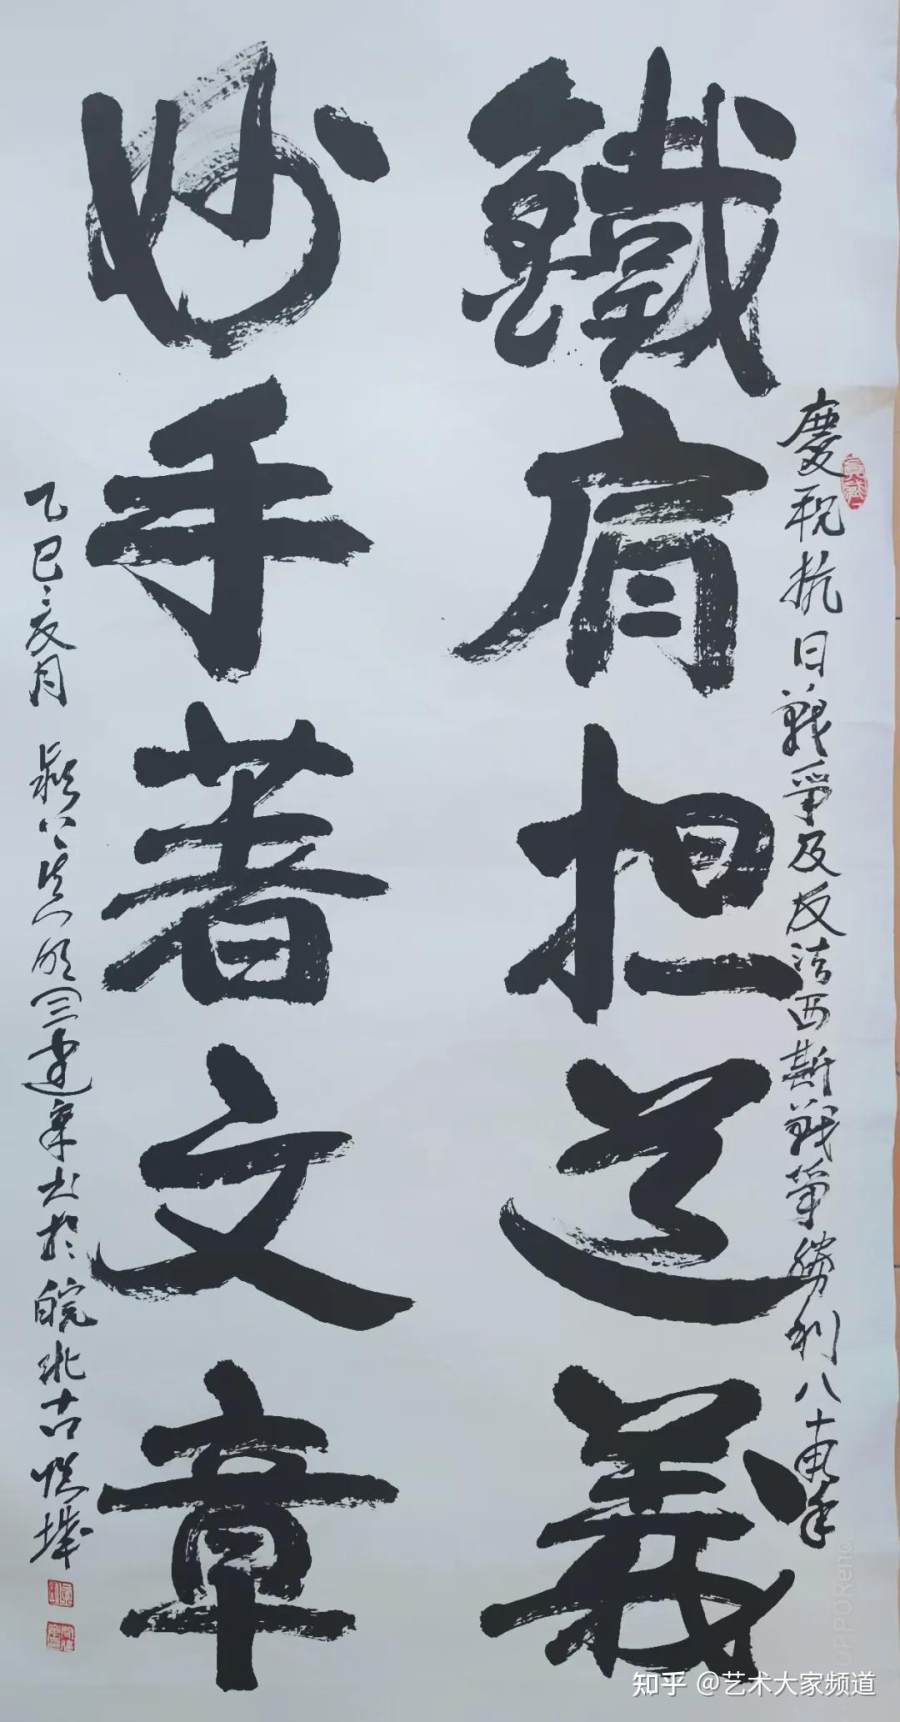 慶祝抗日戰爭及反法西斯戰爭勝利八十周年
鐵肩担道義
妙手著文章
乙巳亥月
建軍书於皖北古
知乎 @艺术大家频道
OPPO Reno